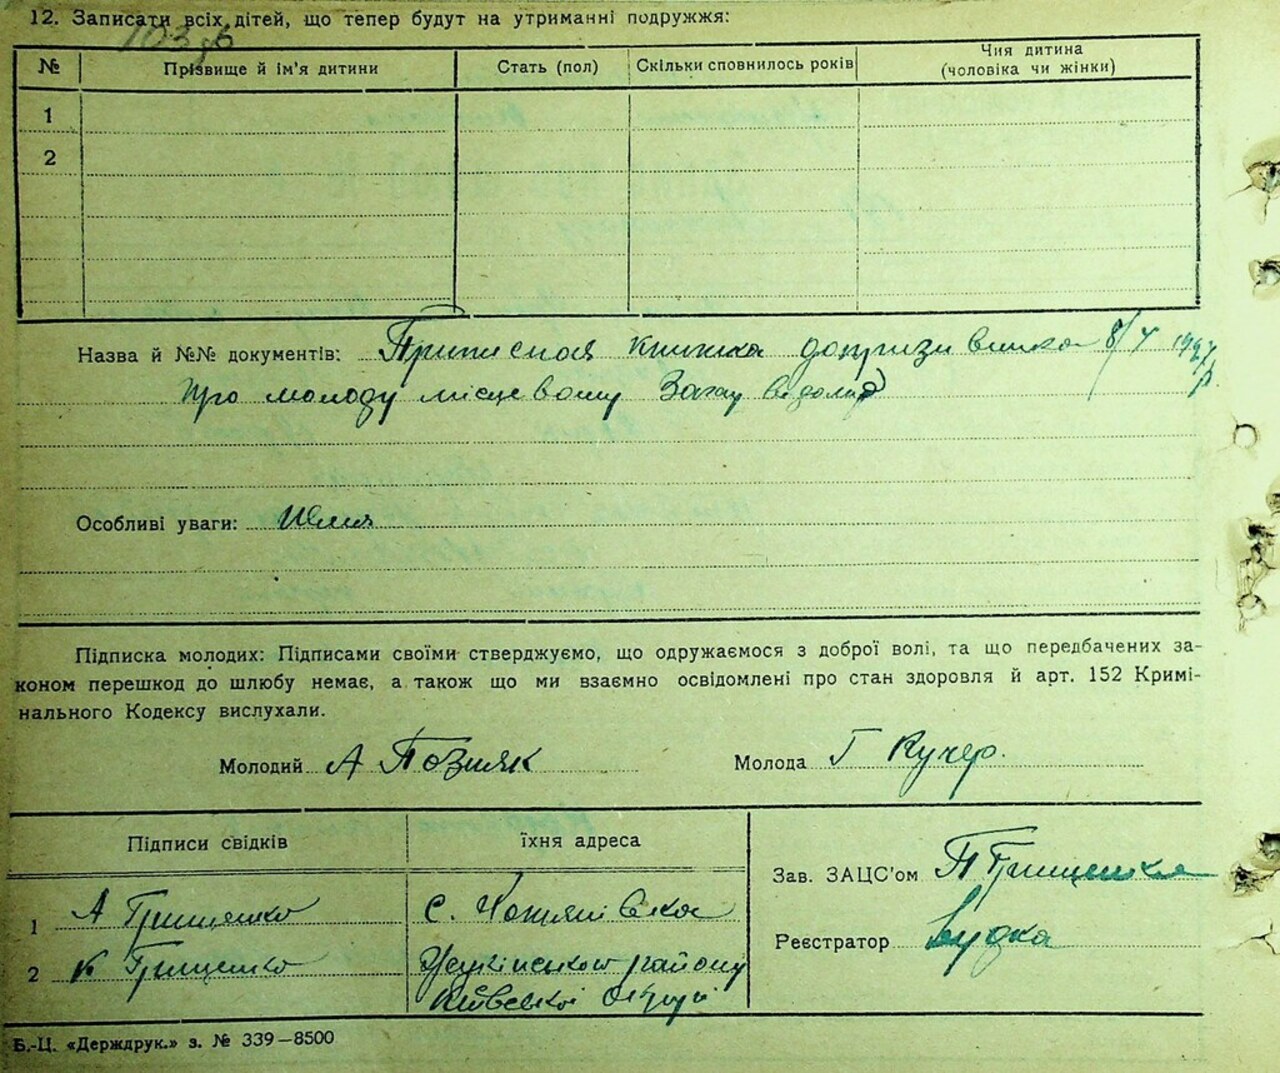 12. Записати всіх дітей, що тепер будут на утриманні подружжя:
103 зв
№ Прізвище й ім'я дитини Стать (пол) Скільки сповнилось років Чия дитина
(чоловіка чи жінки)
1
2
Назва й №№ документів: Приписная книжка допризивника 8/4 1927 р.
Про молоду місцевому Загсу відомо
Особливі уваги:
Підписка молодих: Підписами своїми стверджуємо, що одружаємося з доброї волі, та що передбачених за-
коном перешкод до шлюбу немає, а також що ми взаємно освідомлені про стан здоровля й арт. 152 Кримі-
нального Кодексу вислухали.
Молодий А Позняк Молода Г Кучер.
Підписи свідків їхня адреса
Зав. ЗАЦС'ом П Грищенко
1 А Грищенко с.
Реєстратор Будка
2 К Грищенко району
Київської Округи
Б.-Ц. «Держдрук.» з. № 339—8500